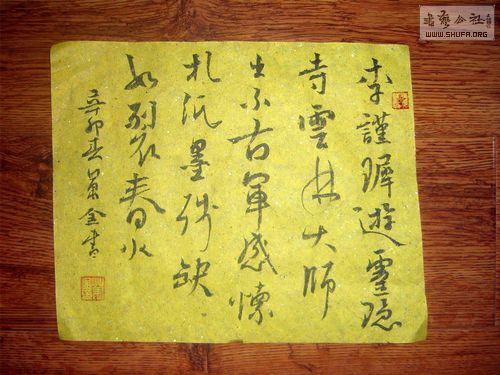 書藝公社
WWW.SHUFA.ORG
李謹遊靈隱
寺雲林大師
出示右軍感懷
札紙墨殘缺
如裂春
辛卯春萬金書